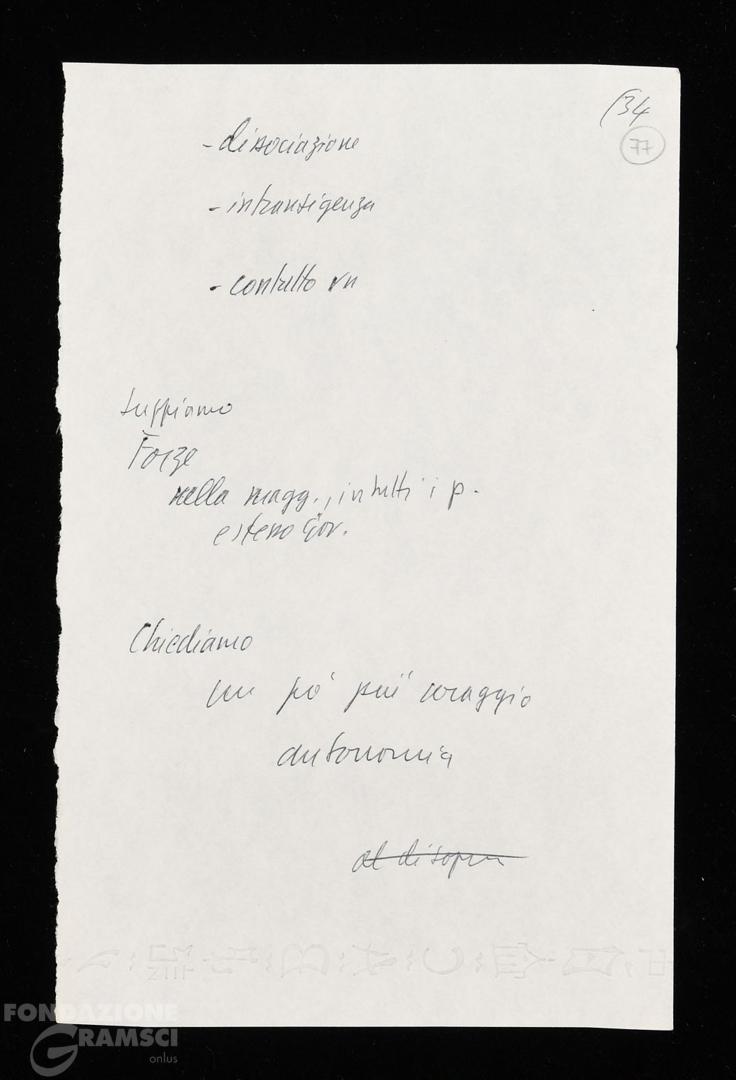 (34
77
- dissociazione
- intransigenza
- contatto
sappiamo
Forze
nella magg., in tutti i p.
esterno Gov.
Chiediamo
un pò più coraggio
autonomia
al disopra
FONDAZIONE
GRAMSCI
onlus